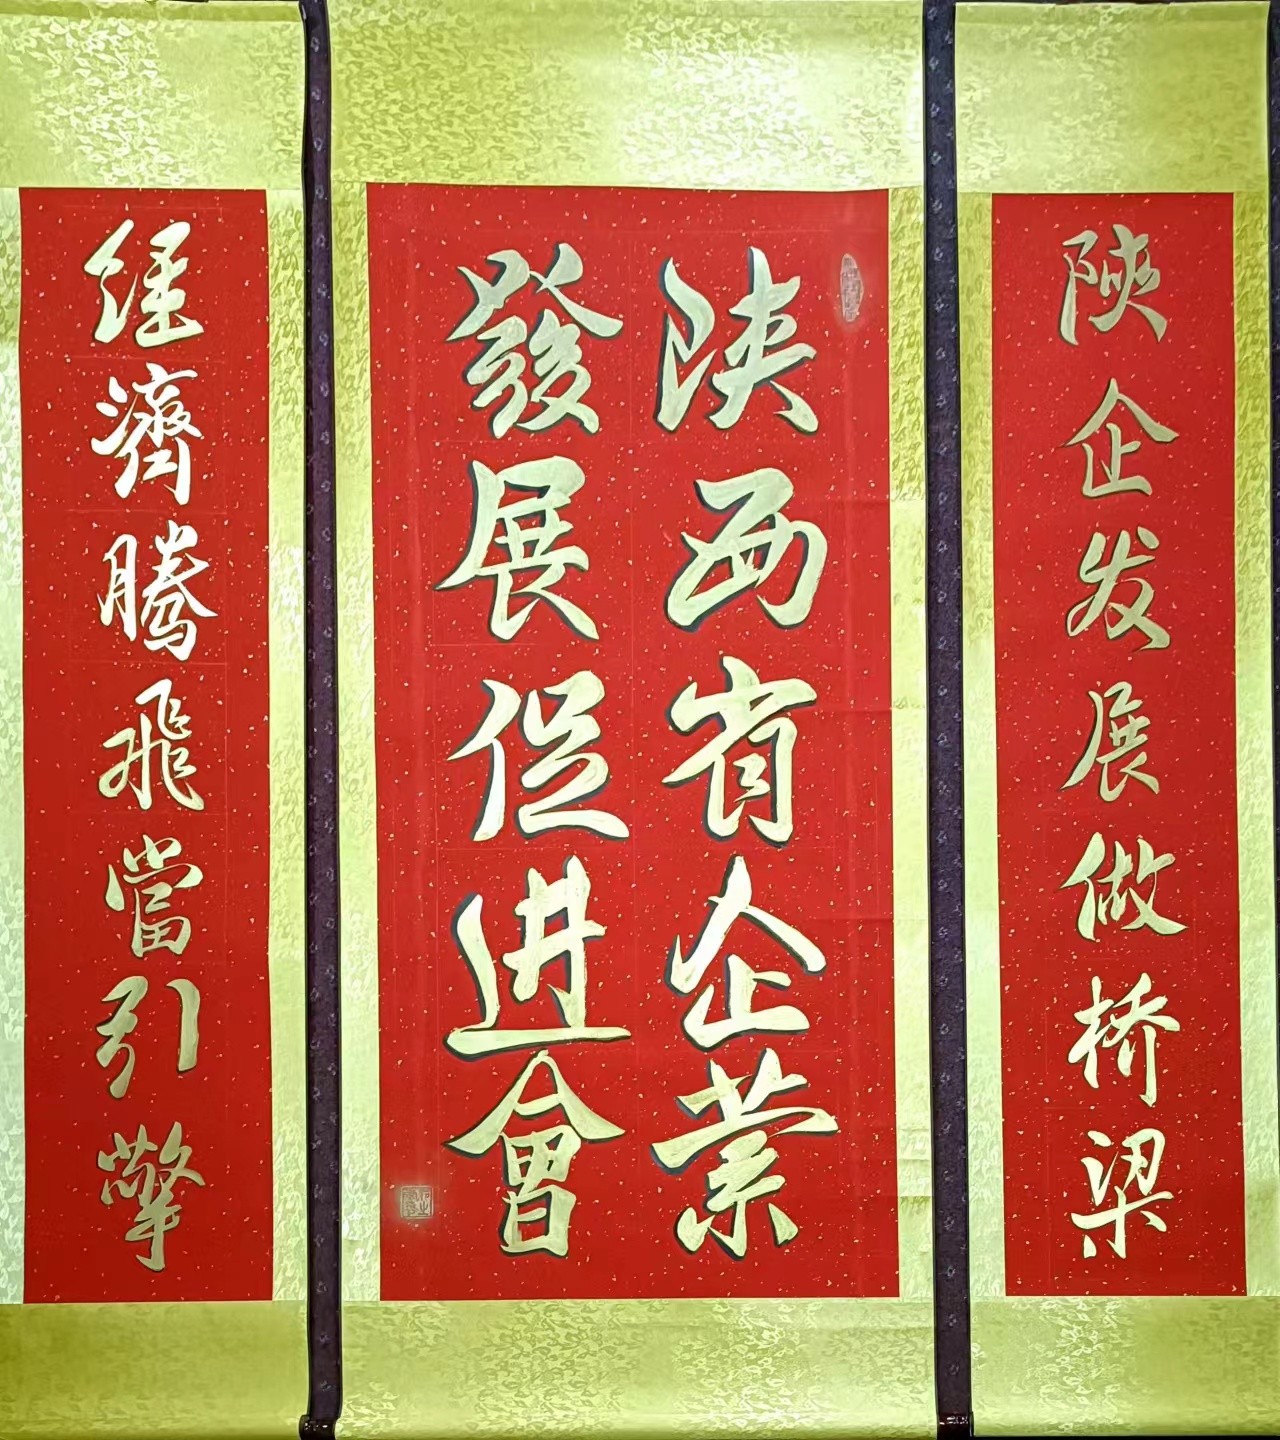 陝企发展做桥梁
陕西省企業
發展促进會
经濟騰飛當引擎